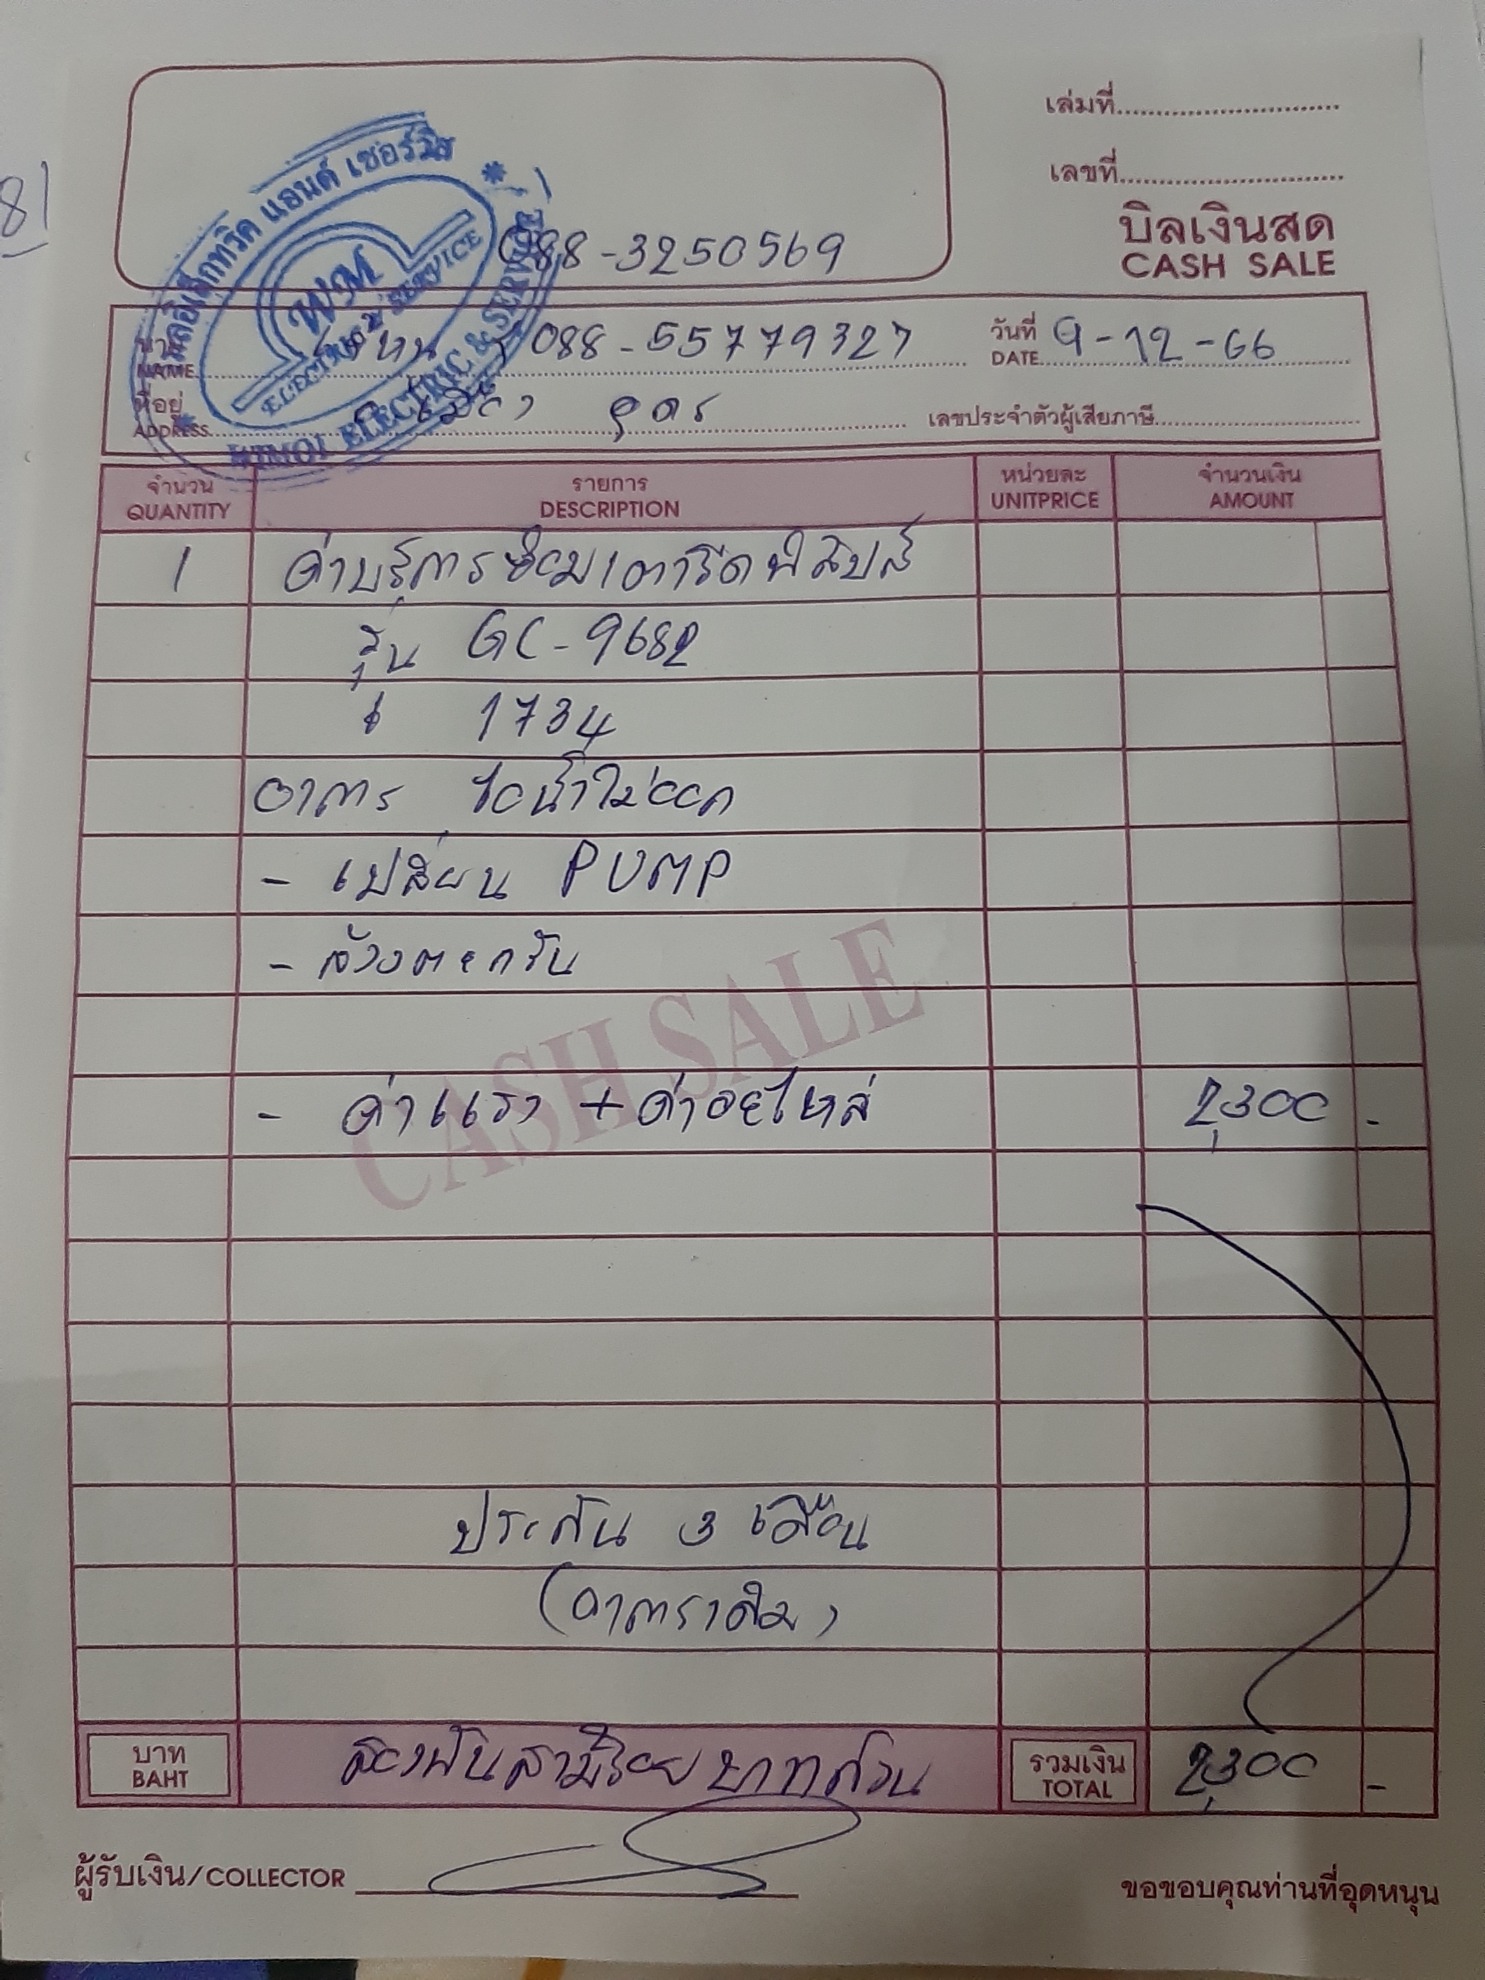 81
เล่มที่
เลขที่
บิลเงินสด
CASH SALE
แอนด์ เซอร์วิส
WM
ELECTRIC & SERVICE
WIMOL ELECTRIC & SERVICE
088-3250569
นาม
NAME
088-55779327
วันที่ 9-12-66
DATE
ที่อยู่ อุดร
ADDRESS
เลขประจำตัวผู้เสียภาษี
จำนวน รายการ หน่วยละ จำนวนเงิน
QUANTITY DESCRIPTION UNITPRICE AMOUNT
1 ค่าบริการซ่อมเตารีดฟิลิปส์
รุ่น GC-9682
1734
อาการ ไอน้ำไม่ออก
- เปลี่ยน PUMP
- ล้างตะกรัน
CASH SALE
- ค่าแรง + ค่าอะไหล่ 2,300 -
ประกัน 3 เดือน
(อาการเดิม)
บาท สองพันสามร้อยบาทถ้วน รวมเงิน 2,300 -
BAHT TOTAL
ผู้รับเงิน/COLLECTOR
ขอขอบคุณท่านที่อุดหนุน